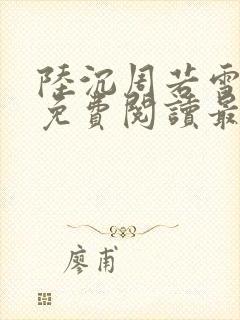 陸沉周若雪
免費閱讀最
廖甫